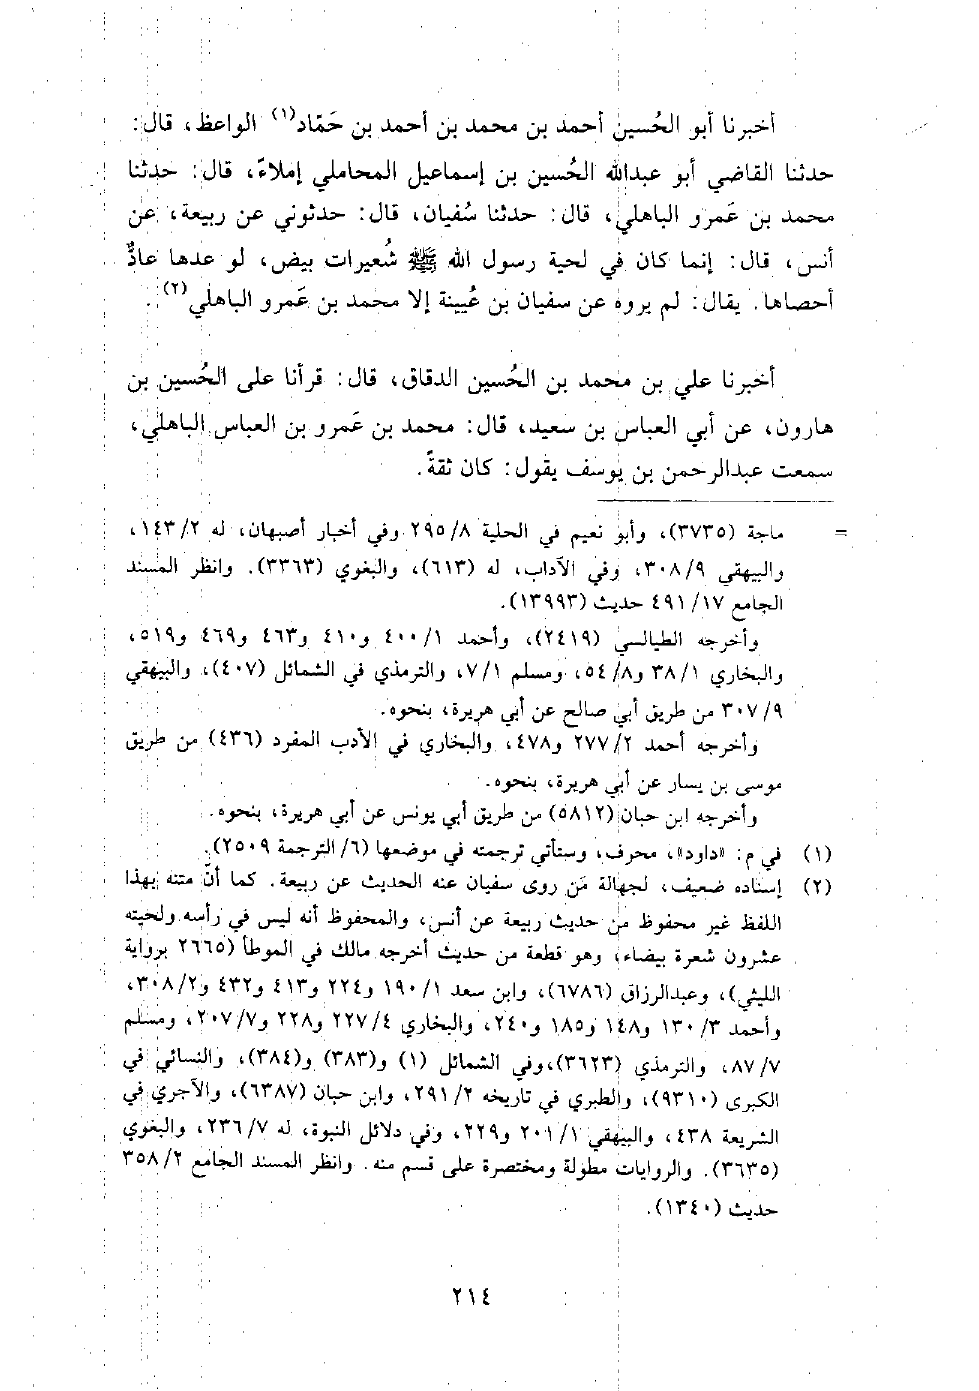 أخبرنا أبو الحُسين أحمد بن محمد بن أحمد بن حَمّاد(١) الواعظ، قال:
حدثنا القاضي أبو عبدالله الحُسين بن إسماعيل المحاملي إملاءً، قال: حدثنا
محمد بن عَمرو الباهلي، قال: حدثنا سُفيان، قال: حدثوني عن ربيعة، عن
أنس، قال: إنما كان في لحية رسول الله ﷺ شُعيرات بيض، لو عدها عادٌّ
أحصاها. يقال: لم يروه عن سفيان بن عُيينة إلا محمد بن عَمرو الباهلي(٢).
أخبرنا علي بن محمد بن الحُسين الدقاق، قال: قرأنا على الحُسين بن
هارون، عن أبي العباس بن سعيد، قال: محمد بن عَمرو بن العباس الباهلي،
سمعت عبدالرحمن بن يوسف يقول: كان ثقةً.
= ماجة (٣٧٣٥)، وأبو نعيم في الحلية ٨/ ٢٩٥ وفي أخبار أصبهان، له ٢/ ١٤٣،
والبيهقي ٩/ ٣٠٨، وفي الآداب، له (٦١٣)، والبغوي (٣٣٦٣). وانظر المسند
الجامع ١٧/ ٤٩١ حديث (١٣٩٩٣).
وأخرجه الطيالسي (٢٤١٩)، وأحمد ١/ ٤٠٠ و٤١٠ و٤٦٣ و٤٦٩ و٥١٩،
والبخاري ١/ ٣٨ و٨/ ٥٤، ومسلم ١/ ٧، والترمذي في الشمائل (٤٠٧)، والبيهقي
٩/ ٣٠٧ من طريق أبي صالح عن أبي هريرة، بنحوه.
وأخرجه أحمد ٢/ ٢٧٧ و٤٧٨، والبخاري في الأدب المفرد (٤٣٦) من طريق
موسى بن يسار عن أبي هريرة، بنحوه.
وأخرجه ابن حبان (٥٨١٢) من طريق أبي يونس عن أبي هريرة، بنحوه.
(١) في م: «داود»، محرف، وستأتي ترجمته في موضعها (٦/ الترجمة ٢٥٠٩).
(٢) إسناده ضعيف، لجهالة مَن روى سفيان عنه الحديث عن ربيعة. كما أنّ متنه بهذا
اللفظ غير محفوظ من حديث ربيعة عن أنس، والمحفوظ أنه ليس في رأسه ولحيته
عشرون شعرة بيضاء، وهو قطعة من حديث أخرجه مالك في الموطأ (٢٦٦٥ برواية
الليثي)، وعبدالرزاق (٦٧٨٦)، وابن سعد ١/ ١٩٠ و٢٢٤ و٤١٣ و٤٣٢ و٢/ ٣٠٨،
وأحمد ٣/ ١٣٠ و١٤٨ و١٨٥ و٢٤٠، والبخاري ٤/ ٢٢٧ و٢٢٨ و٧/ ٢٠٧، ومسلم
٧/ ٨٧، والترمذي (٣٦٢٣)،وفي الشمائل (١) و(٣٨٣) و(٣٨٤)، والنسائي في
الكبرى (٩٣١٠)، والطبري في تاريخه ٢/ ٢٩١، وابن حبان (٦٣٨٧)، والآجري في
الشريعة ٤٣٨، والبيهقي ١/ ٢٠١ و٢٢٩، وفي دلائل النبوة، له ٧/ ٢٣٦، والبغوي
(٣٦٣٥). والروايات مطولة ومختصرة على قسم منه. وانظر المسند الجامع ٢/ ٣٥٨
حديث (١٣٤٠).
٢١٤